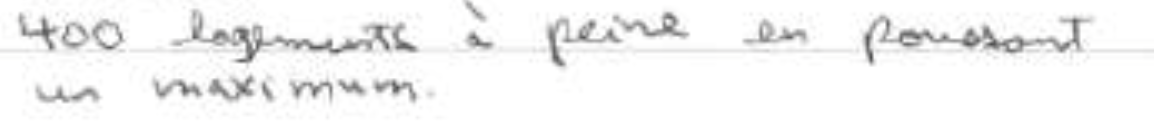 400 logements à peine en poussant
un maximum.